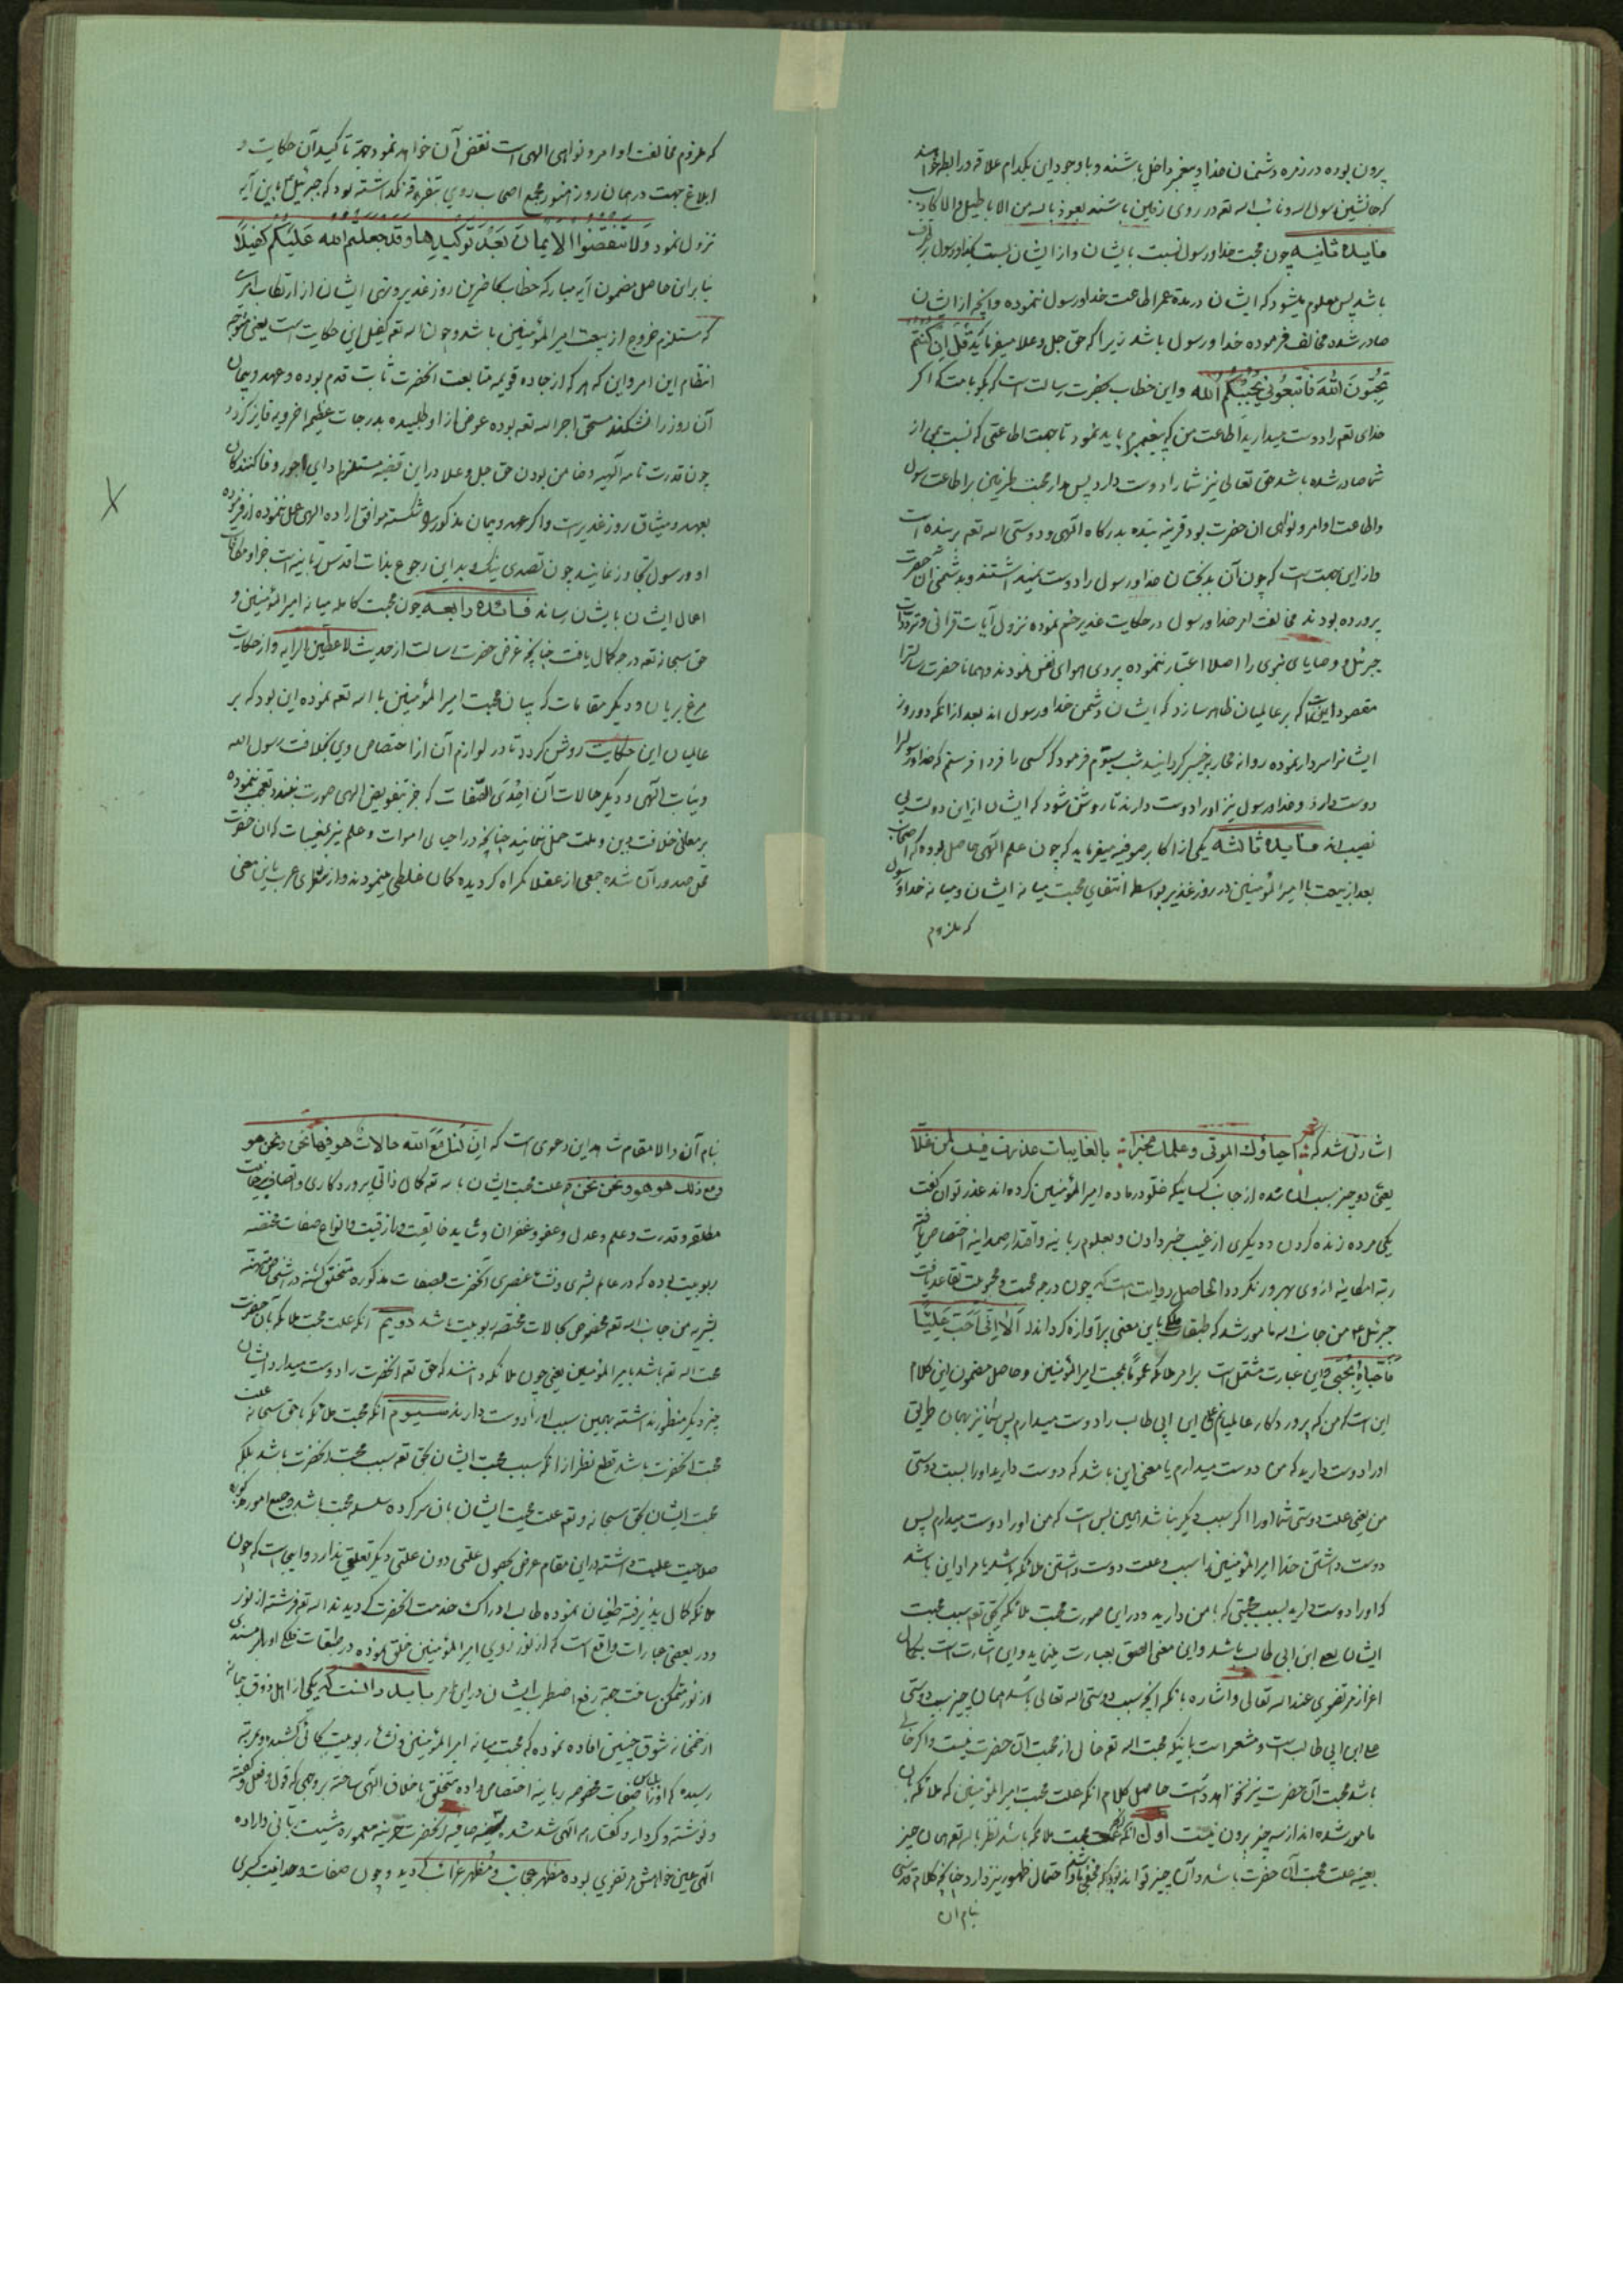 بیرون بوده در زمره دشمنان خدا و پیغمبر داخل باشند و با وجود این بکدام علاقه و رابطه خواهند
که جانشین رسول الله و نائب الله تعه در روی زمین باشند نعوذ بالله من الاباطیل والاکاذیب
فایده ثانیه چون محبت خدا و رسول نسبت بایشان و از ایشان نسبت بخدا و رسول برطرف
باشد پس معلوم میشود که ایشان در مدة عمر اطاعت خدا و رسول ننموده و آنچه از ایشان
صادر شده مخالف فرموده خدا و رسول باشد زیرا که حق جل و علا میفرماید قُل اِن کُنتُم
تُحِبّونَ اللّهَ فَاتَّبِعُونی یُحبِبکُمُ الله و این خطاب بحضرت رسالت است که بگو بامت که اگر
خدای تعه را دوست میدارید اطاعت من که پیغمبرم باید نمود تا بجهت اطاعتی که نسبت بمن از
شما صادر شده باشد حق تعالی نیز شما را دوست دارد پس مدار محبت طرفین بر اطاعت رسول
واطاعت اوامر و نواهی ان حضرت بود قرینه بنده بدرکاه الهی و دوستی الله تعه بر بنده است
و از این جهت است که چون آن بدبختان خدا و رسول را دوست نمیداشتند و بدشمنی آن حضرت
پرورده بودند مخالفت امر خدا و رسول در حکایت غدیر خم نموده نزول آیات قرآنی و تردد
جبرئیل و وصایای نبوی را اصلا اعتبار ننموده پیروی هوای نفس نمودند و همانا حضرت رسالترا
مقصود این که بر عالمیان ظاهر سازد که ایشان دشمن خدا و رسول اند بعد از آنکه دو روز
ایشانرا سردار نموده روانه محاربه خیبر گردانید شب سیّم فرمود که کسی را فردا فرستم که خدا و رسولرا
دوست دارد و خدا و رسول نیز او را دوست دارند تا روشن شود که ایشان از این دوستی بی
نصیب اند فایده ثالثه یکی از اکابر صوفیه میفرماید که چون علم الهی حاصل بوده که اصحاب
بعد از بیعت با امیر المؤمنین در روز غدیر بواسطه انتفای محبت میانه ایشان و میانه خدا و رسول
که ملزوم
که ملزوم مخالفت اوامر و نواهی الهی است نقض آن خواهند نمود جهة تاکید آن حکایت و
ابلاغ حجت در همان روز هنوز مجمع اصحاب روی بتفرقه نگذاشته بود که جبرئیل باین آیه
نزول نمود وَلا تَنقُضُوا الاَیمانَ بَعدَ تَوکیدِها وَقَد جَعَلتُم الله عَلَیکُم کَفیلًا
بنابراین حاصل مضمون آیه مبارکه خطاب بحاضرین روز غدیر و نهی ایشان از ارتکاب امری
که مستلزم خروج از بیعت امیر المؤمنین باشد و چون الله تعه کفیل این حکایت است یعنی متوجه
انتظام این امر و این که هر که از جاده قویمه متابعت آنحضرت ثابت قدم بوده و عهد و پیمان
آن روز را نشکند مستحق اجر الله تعه بوده عوض از او طلبیده بدرجات عظیم اخرویه فایز گردد و
چون قدرت تامه الهیه و ضامن بودن حق جل و علا در این قضیه مستلزم ادای اجور وفا کنندگان
بعهد و میثاق روز غدیر است و اگر عهد و پیمان مذکور را شکسته موافق اراده الهی عمل ننموده از فرموده
او و رسول تجاوز نمایند چون تصدی نیک و بد این رجوع بذات اقدس ربانیه است جزا و مکافات
اعمال ایشان بایشان رساند فائده رابعه چون محبت کامله میانه امیر المؤمنین و
حق سبحانه تعه درجه کمال یافت چنانچه غرض حضرت رسالت از حدیث لاعطین الرایه و از حکایت
مرغ بریان و دیگر مقامات که بیان محبت امیر المؤمنین با الله تعه نموده این بود که بر
عالمیان این حکایت روشن گردد تا در لوازم آن از اختصاص وی بخلافت رسول الله
و نیابت الهی و دیگر حالات آن احدی الصّفات که جز بتفویض الهی صورت نبندد تعجب ننموده
بر معانی خلاف دین و ملت حمل ننمایند چنانچه در احیای اموات و علم نیز بمغیبات که ان حضرت
محل صدور آن شده جمعی از عقلا گمراه گردیده گمان غلطی مینمودند و از شعرای عرب باین معنی
اشارتی شد که احیاؤك الموتی و علمك مخبرا بالغایبات عذرت فیك لمن غلا
یعنی دو چیز سبب اراده شده از جانب کسانیکه غلو در ماده امیر المؤمنین کرده اند عذر توان گفت
یکی مرده زنده کردن و دیگری از غیب خبر دادن و بعلوم ربانیه و اقتدار صمدانیه اختصاص یافته
رتبه امکانیه از وی بهره ور نگردد الحاصل روایت است که چون درجه محبت و محبوبیت تقاعد یافت
جبرئیل ع من جانب الله مامور شد که طبقات ملک باین معنی پرآوازه گرداند اَلا اِنّی اُحِبُّ عَلیًّا
فَاَحِبّاهُ بِحُبّی و این عبارت مشتمل است بر امر ملائکه عموماً بمحبت امیر المؤمنین و حاصل مضمون این کلام
این است که من که پروردگار عالمیانم علی ابن ابی طالب را دوست میدارم پس شما نیز بهمان طریق
او را دوست دارید که من دوست میدارم یا معنی این باشد که دوست دارید او را بسبب دوستی
من یعنی علت دوستی شما او را اگر سبب دیگر نباشد همین بس است که من او را دوست میدارم پس
دوست داشتن خدا امیر المؤمنین را سبب و علت دوست داشتن ملائکه باشد یا مراد این باشد
که او را دوست دارید بسبب محبتی که با من دارید و در این صورت محبت ملائکه بحق تعه سبب محبت
ایشان بعلی ابن ابی طالب باشد و این معنی الصق بعبارت مینماید و این اشارت است بکمال
اعزاز مرتضوی عند الله تعالی و اشاره بانکه آنچه سبب دوستی الله تعالی باشد همان چیز سبب دوستی
علی ابن ابی طالب است و مشعر است باینکه محبت الله تعه خالی از محبت آن حضرت نیست و اگر خالی
باشد محبت آن حضرت نیز نخواهد داشت حاصل کلام آنکه علت محبت امیر المؤمنین که ملائکه بآن
مامور شده اند از سه چیز بیرون نیست اول آنکه علت محبت ملائکه باشد نظر بالله تعه همان چیز
بعینه علت محبت آن حضرت باشد و آن چیز تواند بود که مخفی باشد و احتمال ظهور نیز دارد چنانچه کلام قدسی
بنام ان
بنام آن والا مقام شاهد این دعوی است که اِنَّ لَنا مَعَ الله حالات هو فیها نحن و نحن هو
و مع ذلك هو هو و نحن نحن چه علت محبت ایشان بالله تعه کمال ذاتی پروردگاری و اتصاف
مطلقه و قدرت و علم و عدل و عفو و غفران و شاید خالقیت و رازقیت و انواع صفات مختصه
ربوبیت بوده که در عالم بشری و نشاء عنصری آنحضرت بصفات مذکوره متخلق گشته
بشریه من جانب الله تعه مخصوص بکمالات مختصه ربوبیت باشد دویم آنکه علت محبت ملائکه بآن حضرت
محبت الله تعه باشد بامیر المؤمنین یعنی چون ملائکه دانند که حق تعه آنحضرت را دوست میدارد ایشان
چیز دیگر منظور نداشته بهمین سبب او را دوست دارند سیوم آنکه محبت ملائکه با حق سبحانه علت
محبت آنحضرت باشد قطع نظر از آنکه سبب محبت ایشان بحق تعه سبب محبت آنحضرت باشد بلکه
محبت ایشان بحق سبحانه و تعه علت محبت ایشان بآن سرکرده سلسله محبت باشد و جمیع امور مذکوره
صلاحیت علیت داشته در این مقام غرض بحصول علتی دون علتی دیگر تعلق ندارد و این است که چون
ملائکه کمال پذیرفته طغیان نموده طالب ادراک خدمت آنحضرت گردیدند الله تعه فرشته از نور
و در بعضی عبارات واقع است که از نور روی امیر المؤمنین خلق نموده در طبقات فلک او را بر مسندی
از نور متمکن ساخت جهة رفع اضطراب ایشان در این امر باید دانست که یکی از اهل ذوق پیمانه
از خمخانه شوق چنین افاده نموده که محبت میانه امیر المؤمنین و نشاء ربوبیت بجائی کشیده و بمرتبه
رسیده که او را بلباس صفات مخصوصه ربانیه اختصاص داده متخلق باخلاق الهی ساخته بروجهی که قول و فعل و گفته
و نوشته و کردار و گفتار همه الهی شد شده سینه صافیه آنحضرت خزینه معموره مشیت ربانی و اراده
الهی عین خواهش مرتضوی بوده مظهر عجائب و مُظهر غرائب گردید و چون صفات وحدانیت کبری